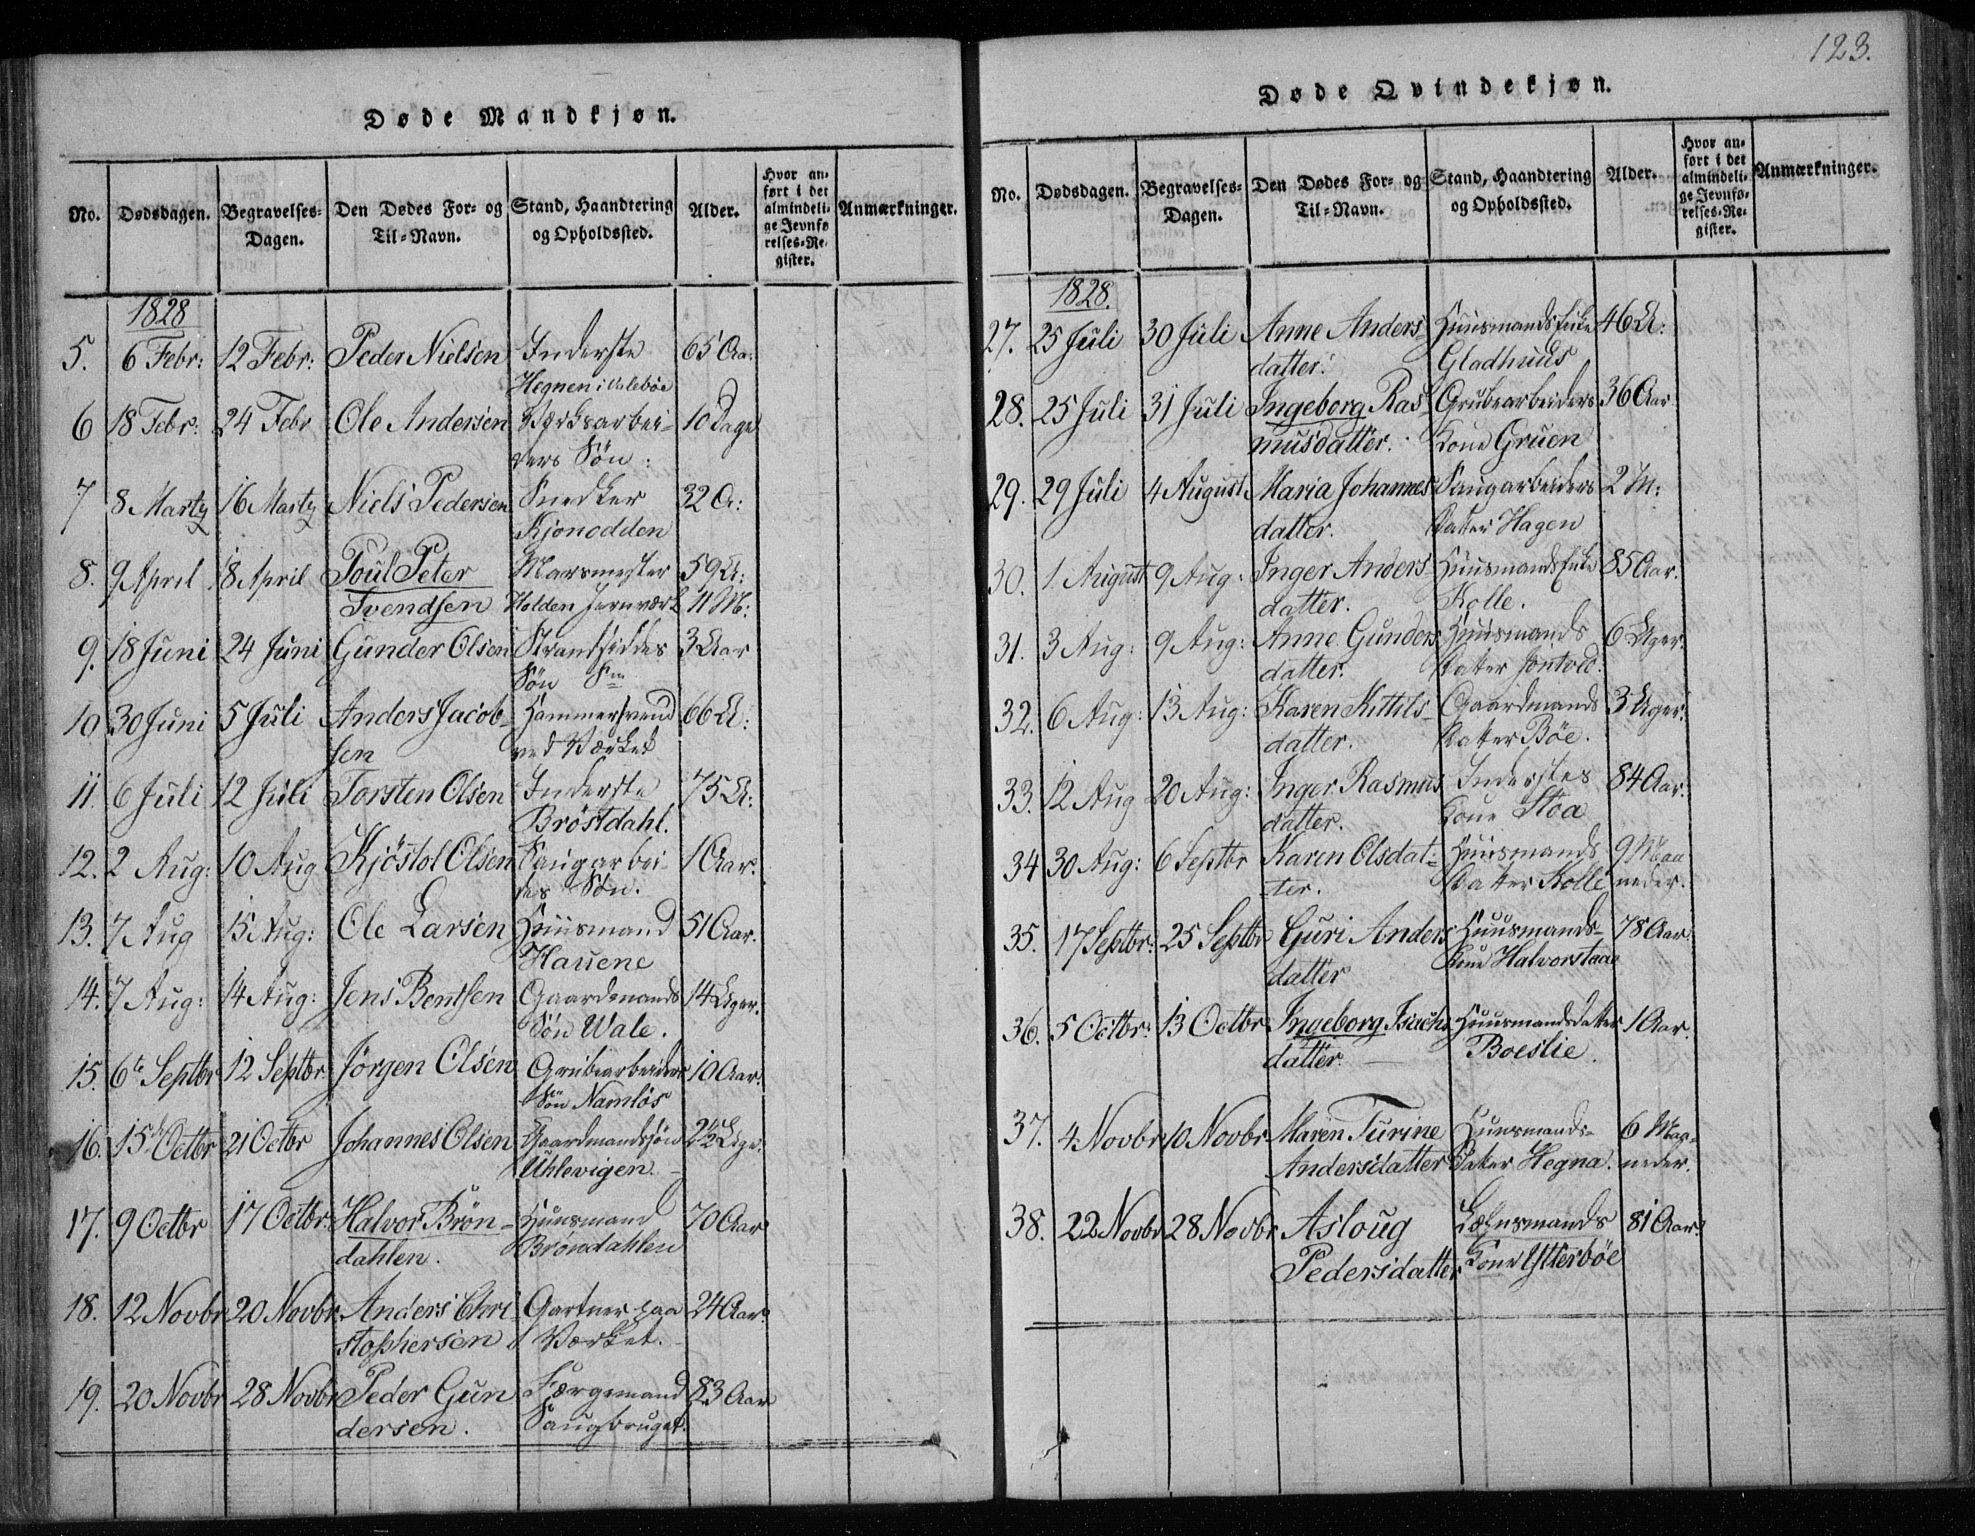 123.
Døde Mandkjøn.
No. Dødsdagen. Begravelses-Dagen. Den Dødes For- og Til-Navn. Stand, Haandtering og Opholdssted. Alder. Hvor anført i det almindelige Jevnførelses-Register. Anmærkninger.
1828
5. 6 Febr: 12 Febr: Peder Nielsen Inderste 65 Aa:
Hegnen i Valebøe
6 18 Febr: 24 Febr Ole Andersen Værksarbei- 10 Dage
ders Søn:
7 8 Marty 16 Marty Niels Pedersen Snedker 32 A:
Kjonodden
8. 9 April 18 April Poul Peter Marsmester 59 A:
Svendsen Holden Jernværk 11 M:
9. 18 Juni 24 Juni Gunder Olsen Strandsiddes 3 Aar
Søn
10 30 Juni 5 Juli Anders Jacob- Hammersvend 66 A:
sen ved Værket
11. 6 Juli 12 Juli Torsten Olsen Inderste 75 A:
Brøstdahl.
12. 2 Aug: 10 Aug Kjøstol Olsen Saugarbei- 1 Aar.
des Søn.
13. 7 Aug 15 Aug: Ole Larsen Huusmand 51 Aar.
Hauene
14. 7 Aug: 14 Aug: Jens Bentsen Gaardmands 14 Uger.
Søn Wale.
15. 6te Septbr 12 Septbr Jørgen Olsen Grubearbeiders 10 Aar.
Søn Namløs
16. 15de Octbr 21 Octbr Johannes Olsen Gaardmandssøn 2½ Uge.
Uhlevigen.
17. 9 Octbr 17 Octbr: Halvor Brøn- Huusmand 70 Aar
dahlen. Brøndahlen
18. 12 Novbr 20 Novbr. Anders Chri Gartner paa 24 Aar.
stophersen Værket.
19. 20 Novbr 28 Novbr Peder Gun Færgemand 83 Aar
dersen. Saugbruget.
Døde Qvindekjøn.
No. Dødsdagen. Begravelses-Dagen. Den Dødes For- og Til-Navn. Stand, Haandtering og Opholdssted. Alder. Hvor anført i det almindelige Jevnførelses-Register. Anmærkninger.
1828.
27. 25 Juli 30 Juli Anne Anders- Huusmands Enke 46 A:
datter: Gladhuus
28. 25 Juli 31 Juli Ingeborg Ras- Grubearbeiders 36 Aar
musdatter. Kone Gruen
29. 29 Juli 4 August Maria Johannes Saugarbeiders 2 M:
datter. Datter Hagen
30. 1 August 9 Aug: Inger Anders- Huusmands Enke 85 Aar.
datter. Kolle.
31. 3 Aug: 9 Aug: Anne Gunders Huusmands 6 Uger.
datter. Datter Jøntved.
32. 6 Aug: 13 Aug: Karen Kittils- Gaardmands 3 Uger.
datter. Datter Bøe.
33. 12 Aug 20 Aug: Inger Rasmus Inderstes 84 Aar.
datter. Kone Stoa
34 30 Aug: 6 Septbr Karen Olsdat- Huusmands 9 Maa
ter. Datter Kolle neder.
35. 17 Septbr: 25 Septbr Guri Anders Huusmands- 78 Aar
datter Kone Halvorstaae
36. 5 Octbr: 13 Octbr Ingeborg Isachs Huusmandsdatter 1 Aar.
datter. Boeslie.
37. 4 Novbr 10 Novbr Maren Turine Huusmands- 6 Maa-
Andersdatter Datter Hegna. neder.
38. 22 Novbr 28 Novbr Asloug Lehnsmands 81 Aar.
Pedersdatter Kone Ytterbøe